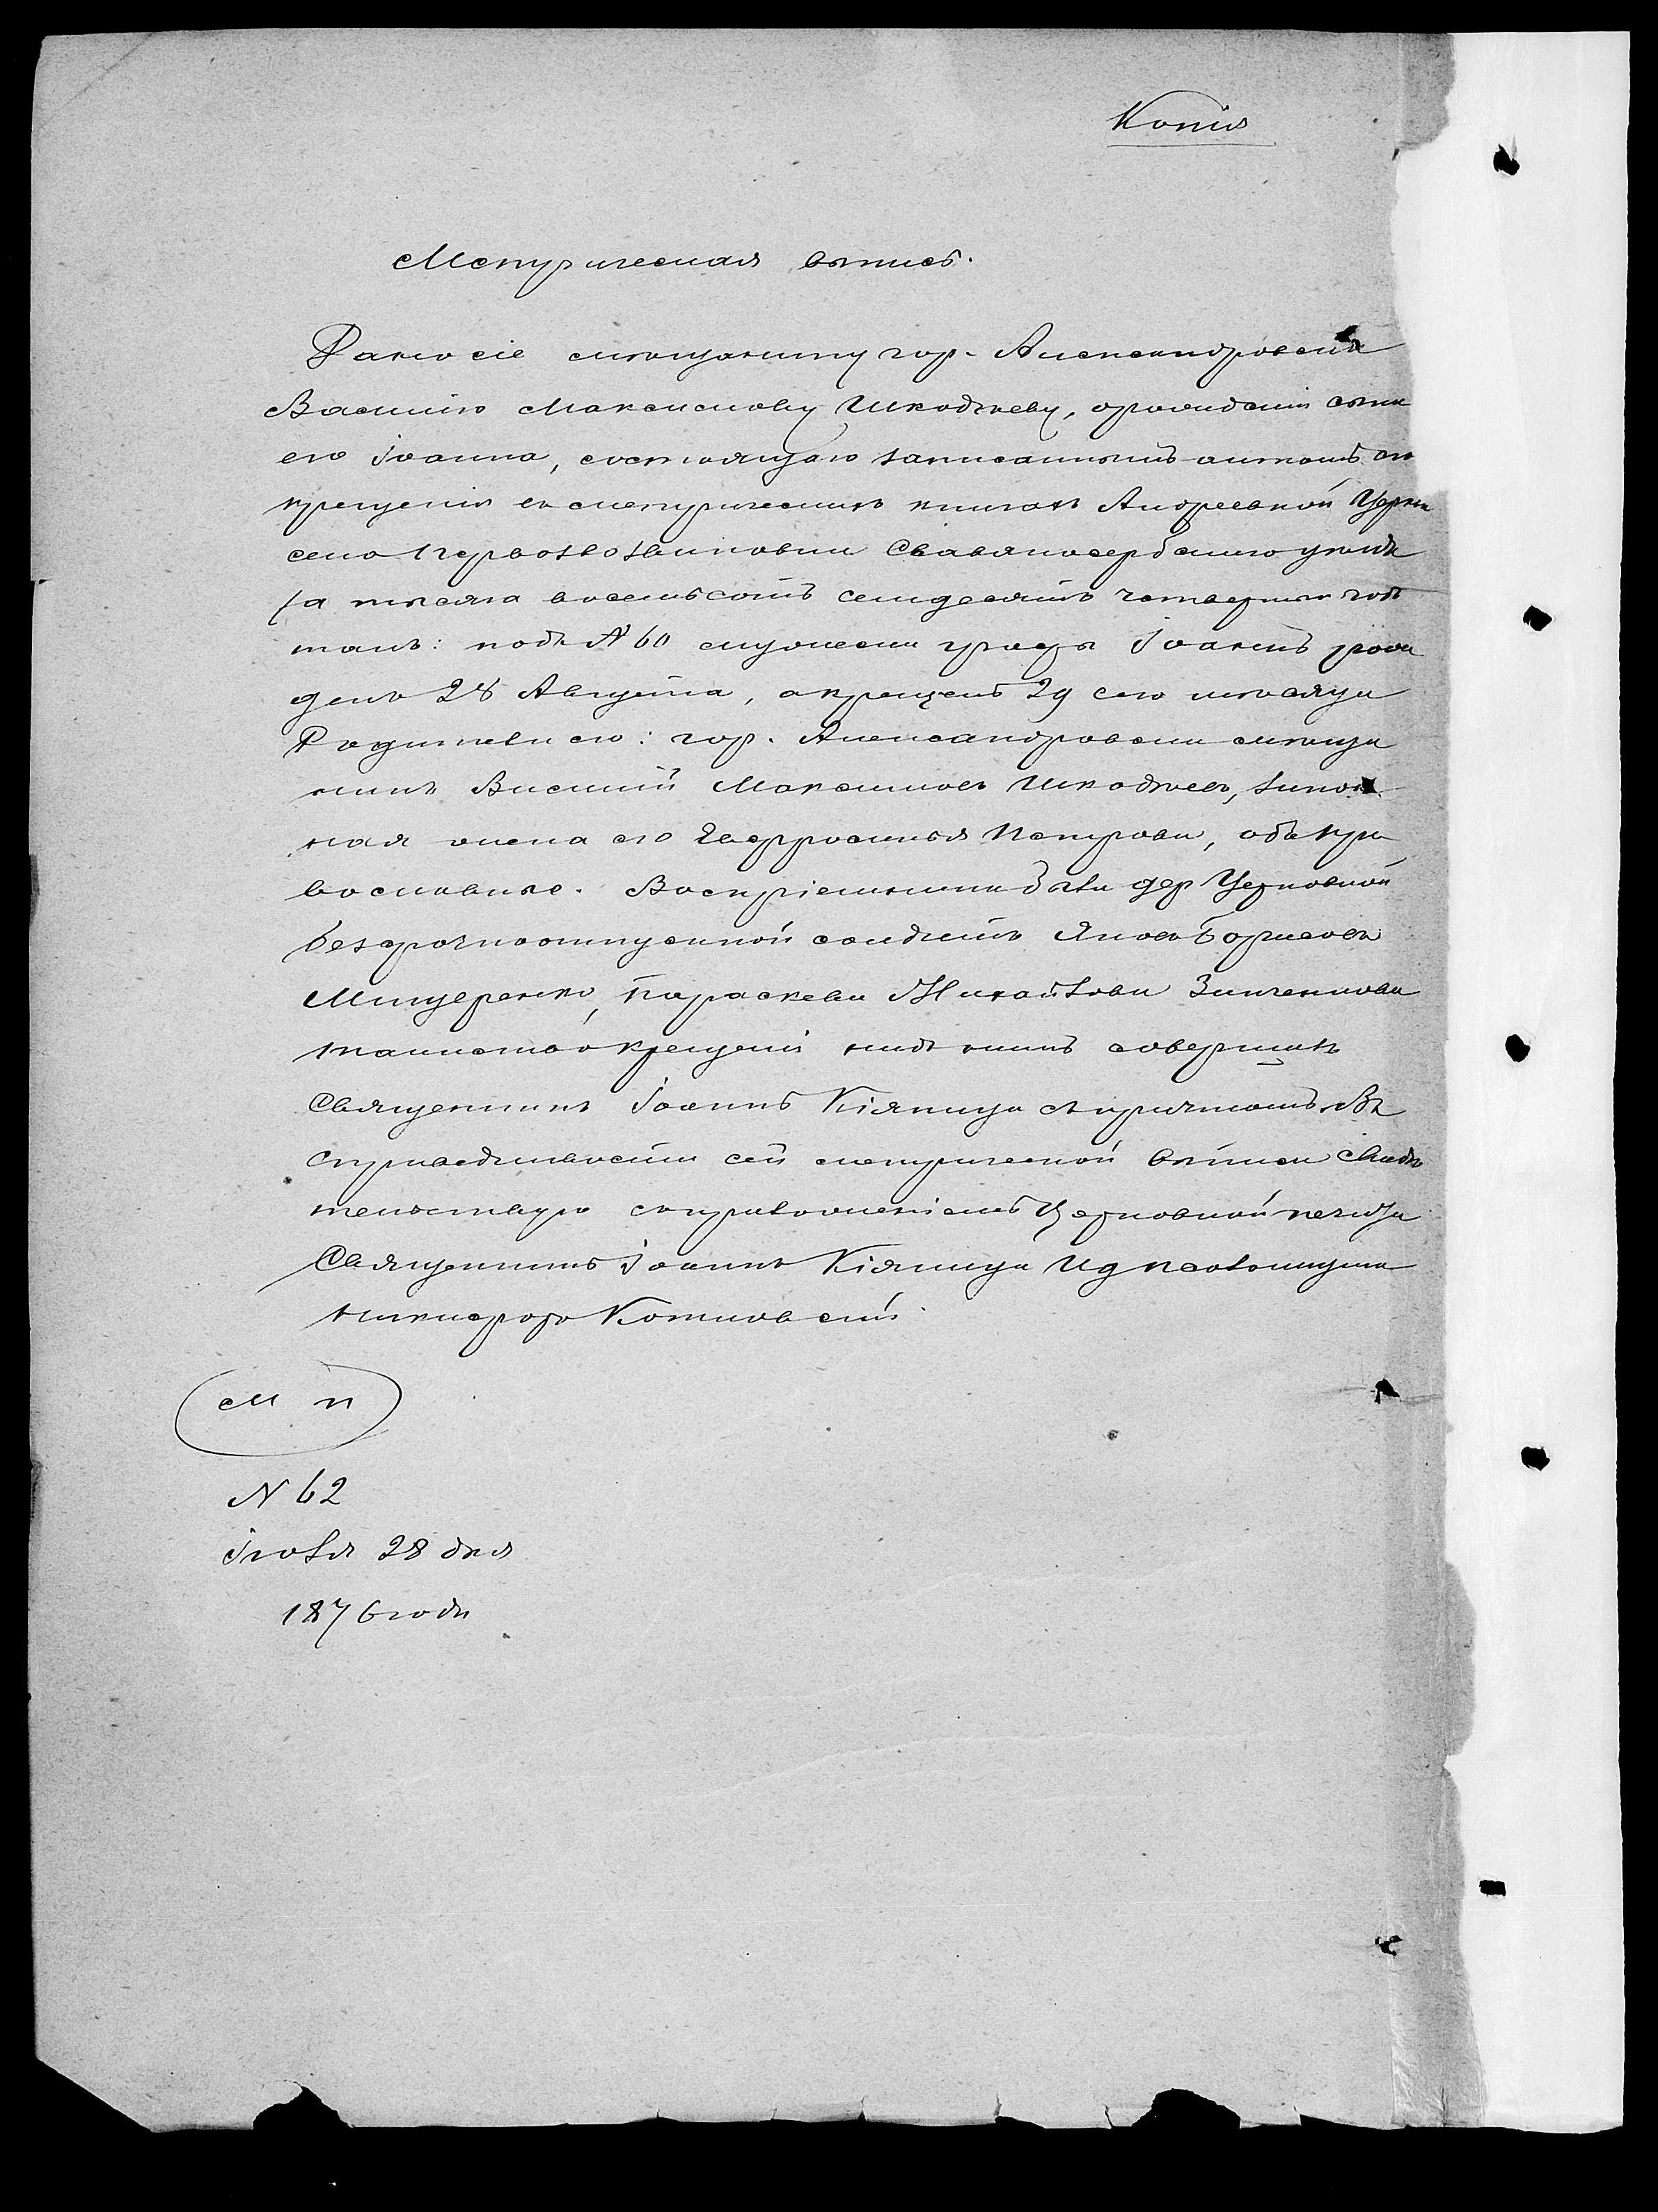 Копія
Метрическая выпись.
Дано сіе мѣщанину гор. Александровска
Василію Максимову Шкодкеву, о рожденіи сына
его Іоанна, состоящаго записаннымъ актомъ о
крещеніи въ метрическихъ книгахъ Андреевской Церкви
села Первозвановки Славяносербскаго уѣзда
за тысяча восемьсотъ семдесятъ четвертый годъ
такъ: подъ № 60 мужеска графы Іоаннъ рож
денъ 28 Августа, а крещенъ 29 сего мѣсяца
Родители его: гор. Александровска мѣща
нинъ Василій Максимовъ Шкодкевъ, закон
ная жена его Евфросинья Петрова, оба пра
вославные. Воспріемники были дер Церковной
безсрочноотпускной солдатъ Яковъ Борисовъ
Мищеренко, Параскева Михайлова Зинченкова
таинство крещенія надъ нимъ совершилъ
Священникъ Іоаннъ Кіяница съ причтомъ. Въ
справедливости сей метрической выписи свидѣ
тельствую съ приложеніемъ Церковной печати
Священникъ Іоаннъ Кіяница И д псаломщика
Никифоръ Котковскій
М П
№ 62
Іюля 28 дня
1876 года